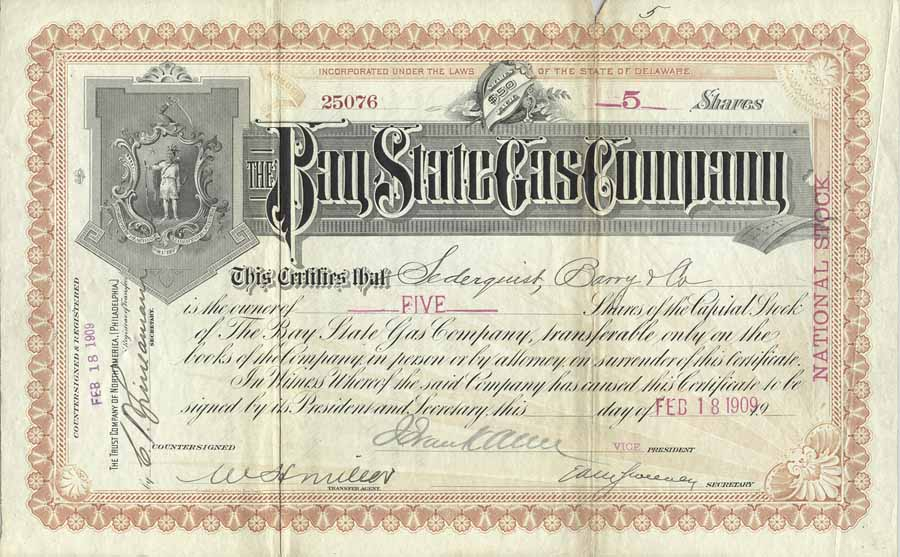 5
INCORPORATED UNDER THE LAWS OF THE STATE OF DELAWARE
25076
SHARES
$50
EACH
5 Shares
THE Bay State Gas Company
This Certifies that Sederquist, Barry & Co
is the owner of FIVE Shares of the Capital Stock
of The Bay State Gas Company, transferable only on the
books of the Company, in person or by attorney, on surrender of this Certificate.
In Witness Whereof the said Company has caused this Certificate to be
signed by its President and Secretary, this day of FEB 18 1909 9
COUNTERSIGNED
VICE PRESIDENT
TRANSFER AGENT.
SECRETARY
COUNTERSIGNED & REGISTERED
FEB 18 1909
THE TRUST COMPANY OF NORTH AMERICA, (PHILADELPHIA)
Registrar of Transfers
by
SECRETARY.
NATIONAL STOCK